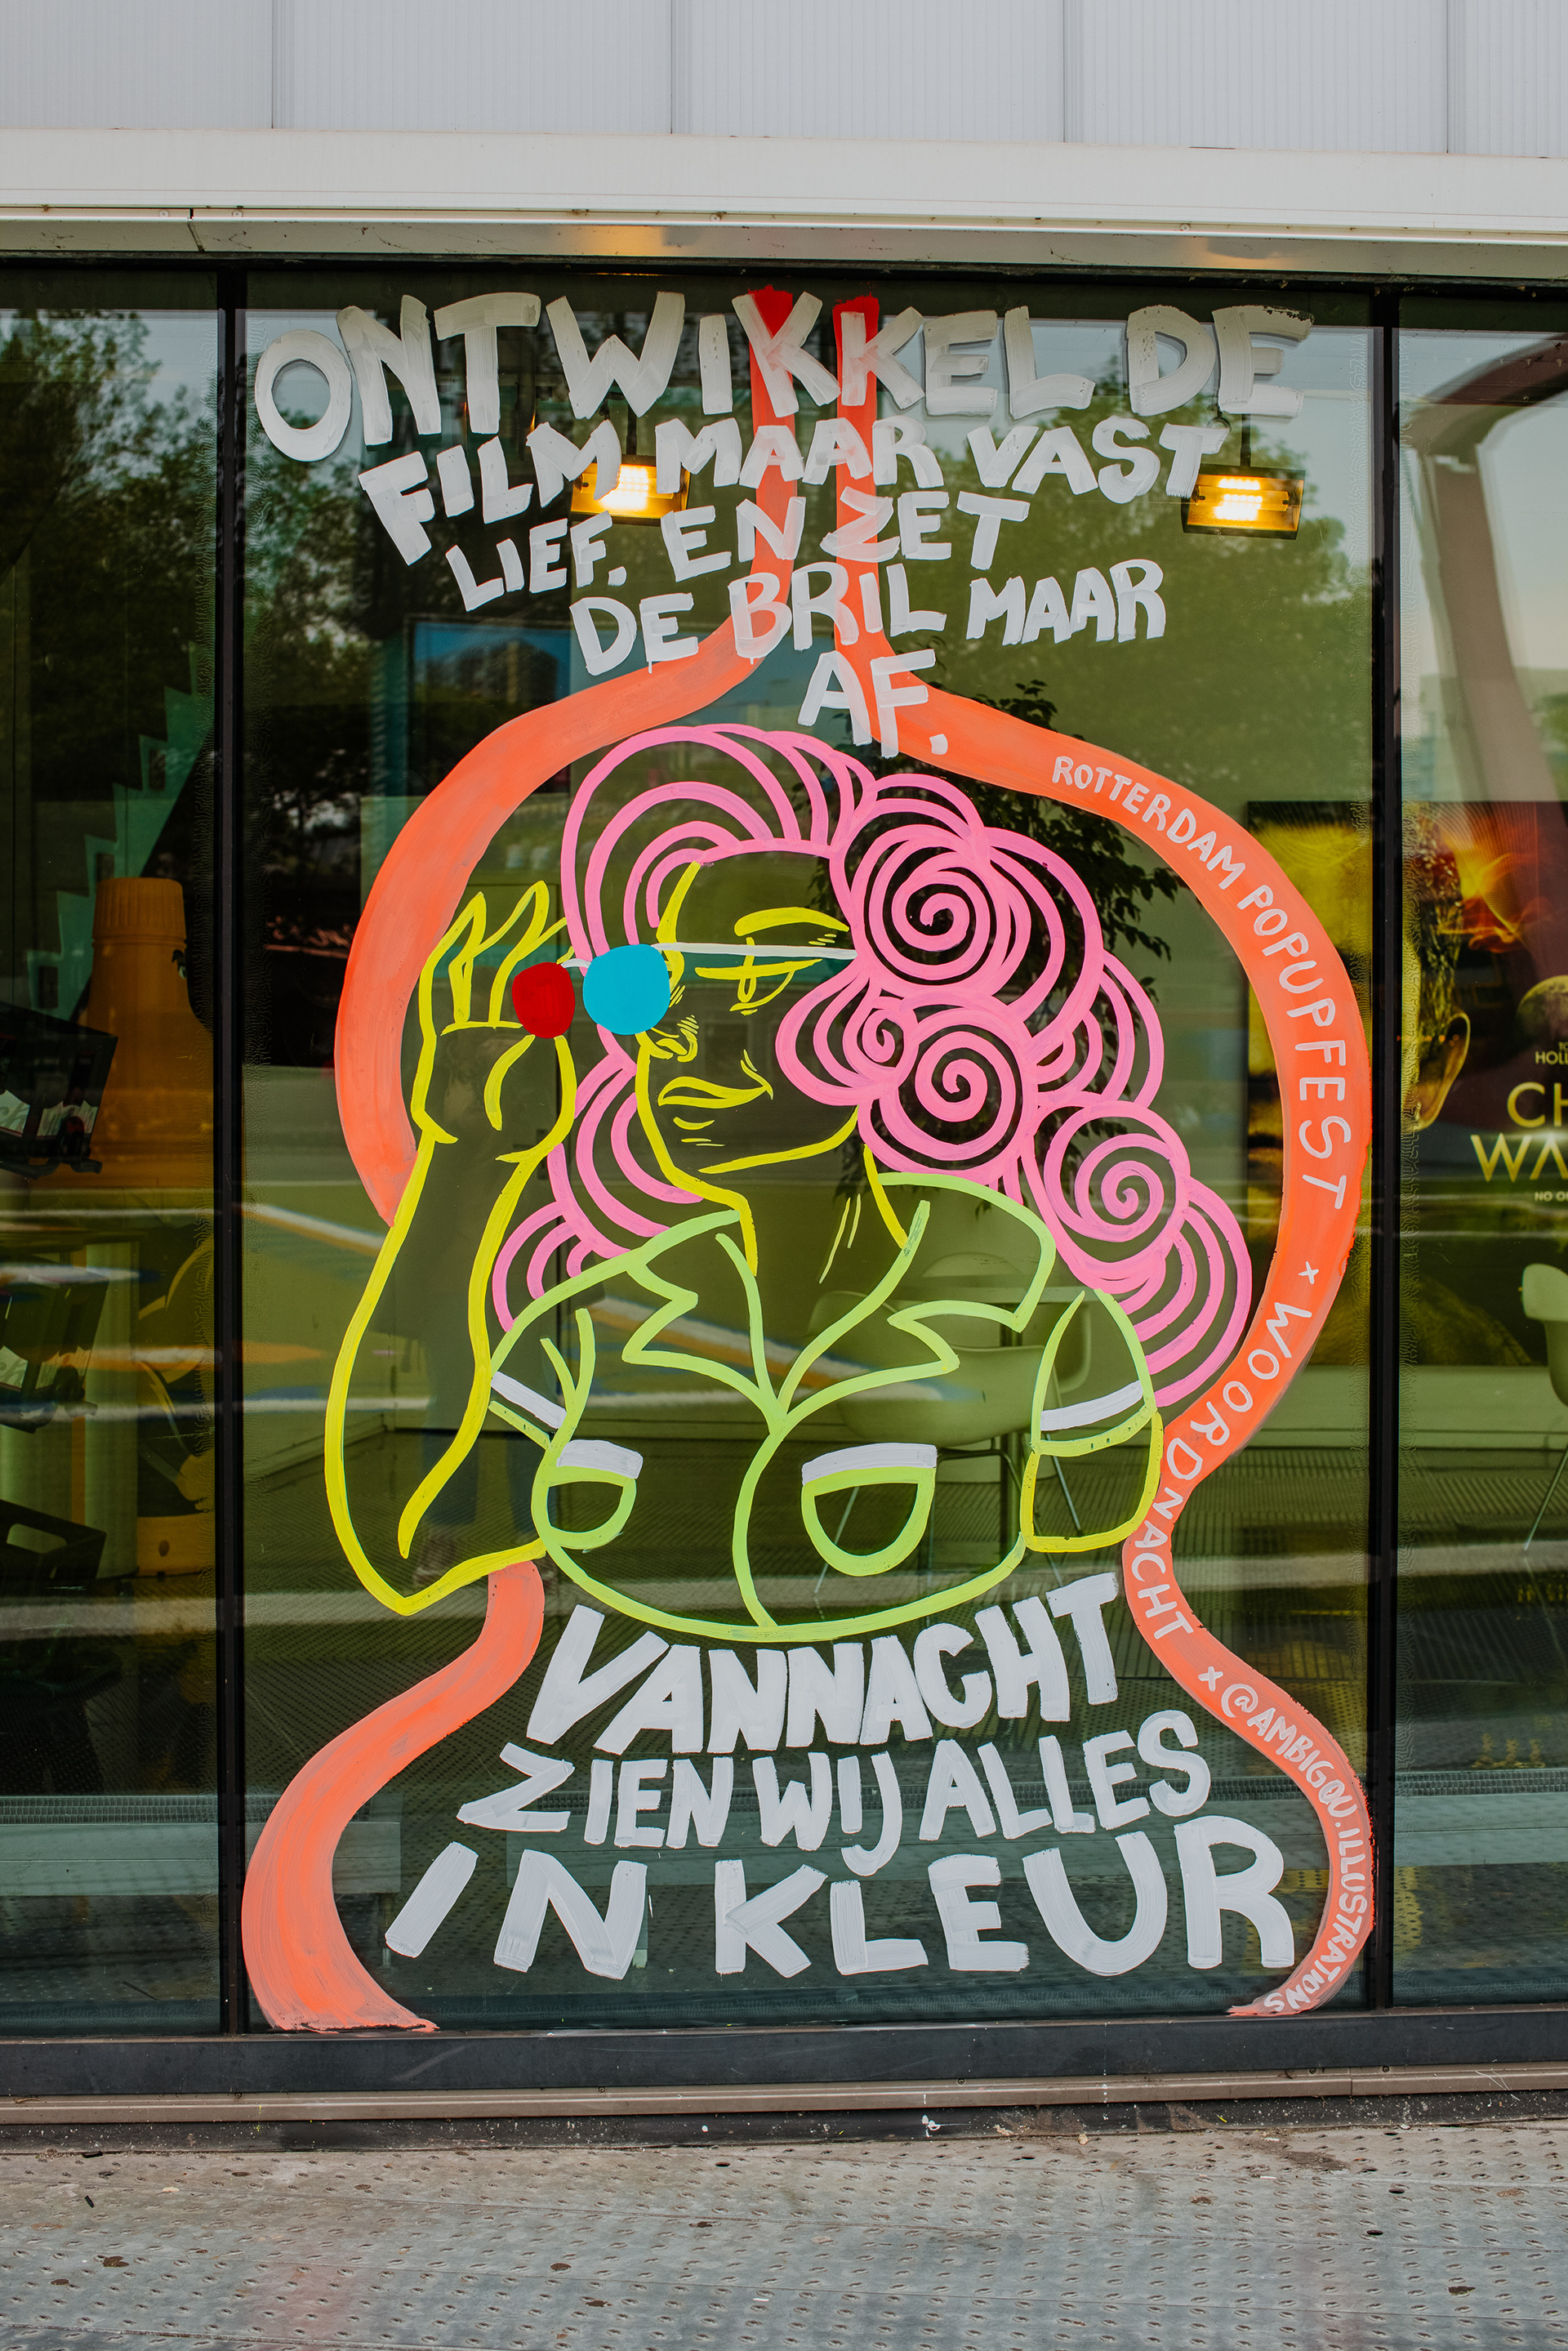 ONTWIKKEL DE
FILM MAAR VAST
LIEF. EN ZET
DE BRIL MAAR
AF.
ROTTERDAM POPUPFEST x WOORDNACHT x @AMBIG@U.ILLUSTRATIONS
VANNACHT
ZIEN WIJ ALLES
IN KLEUR
CH
WA
NO